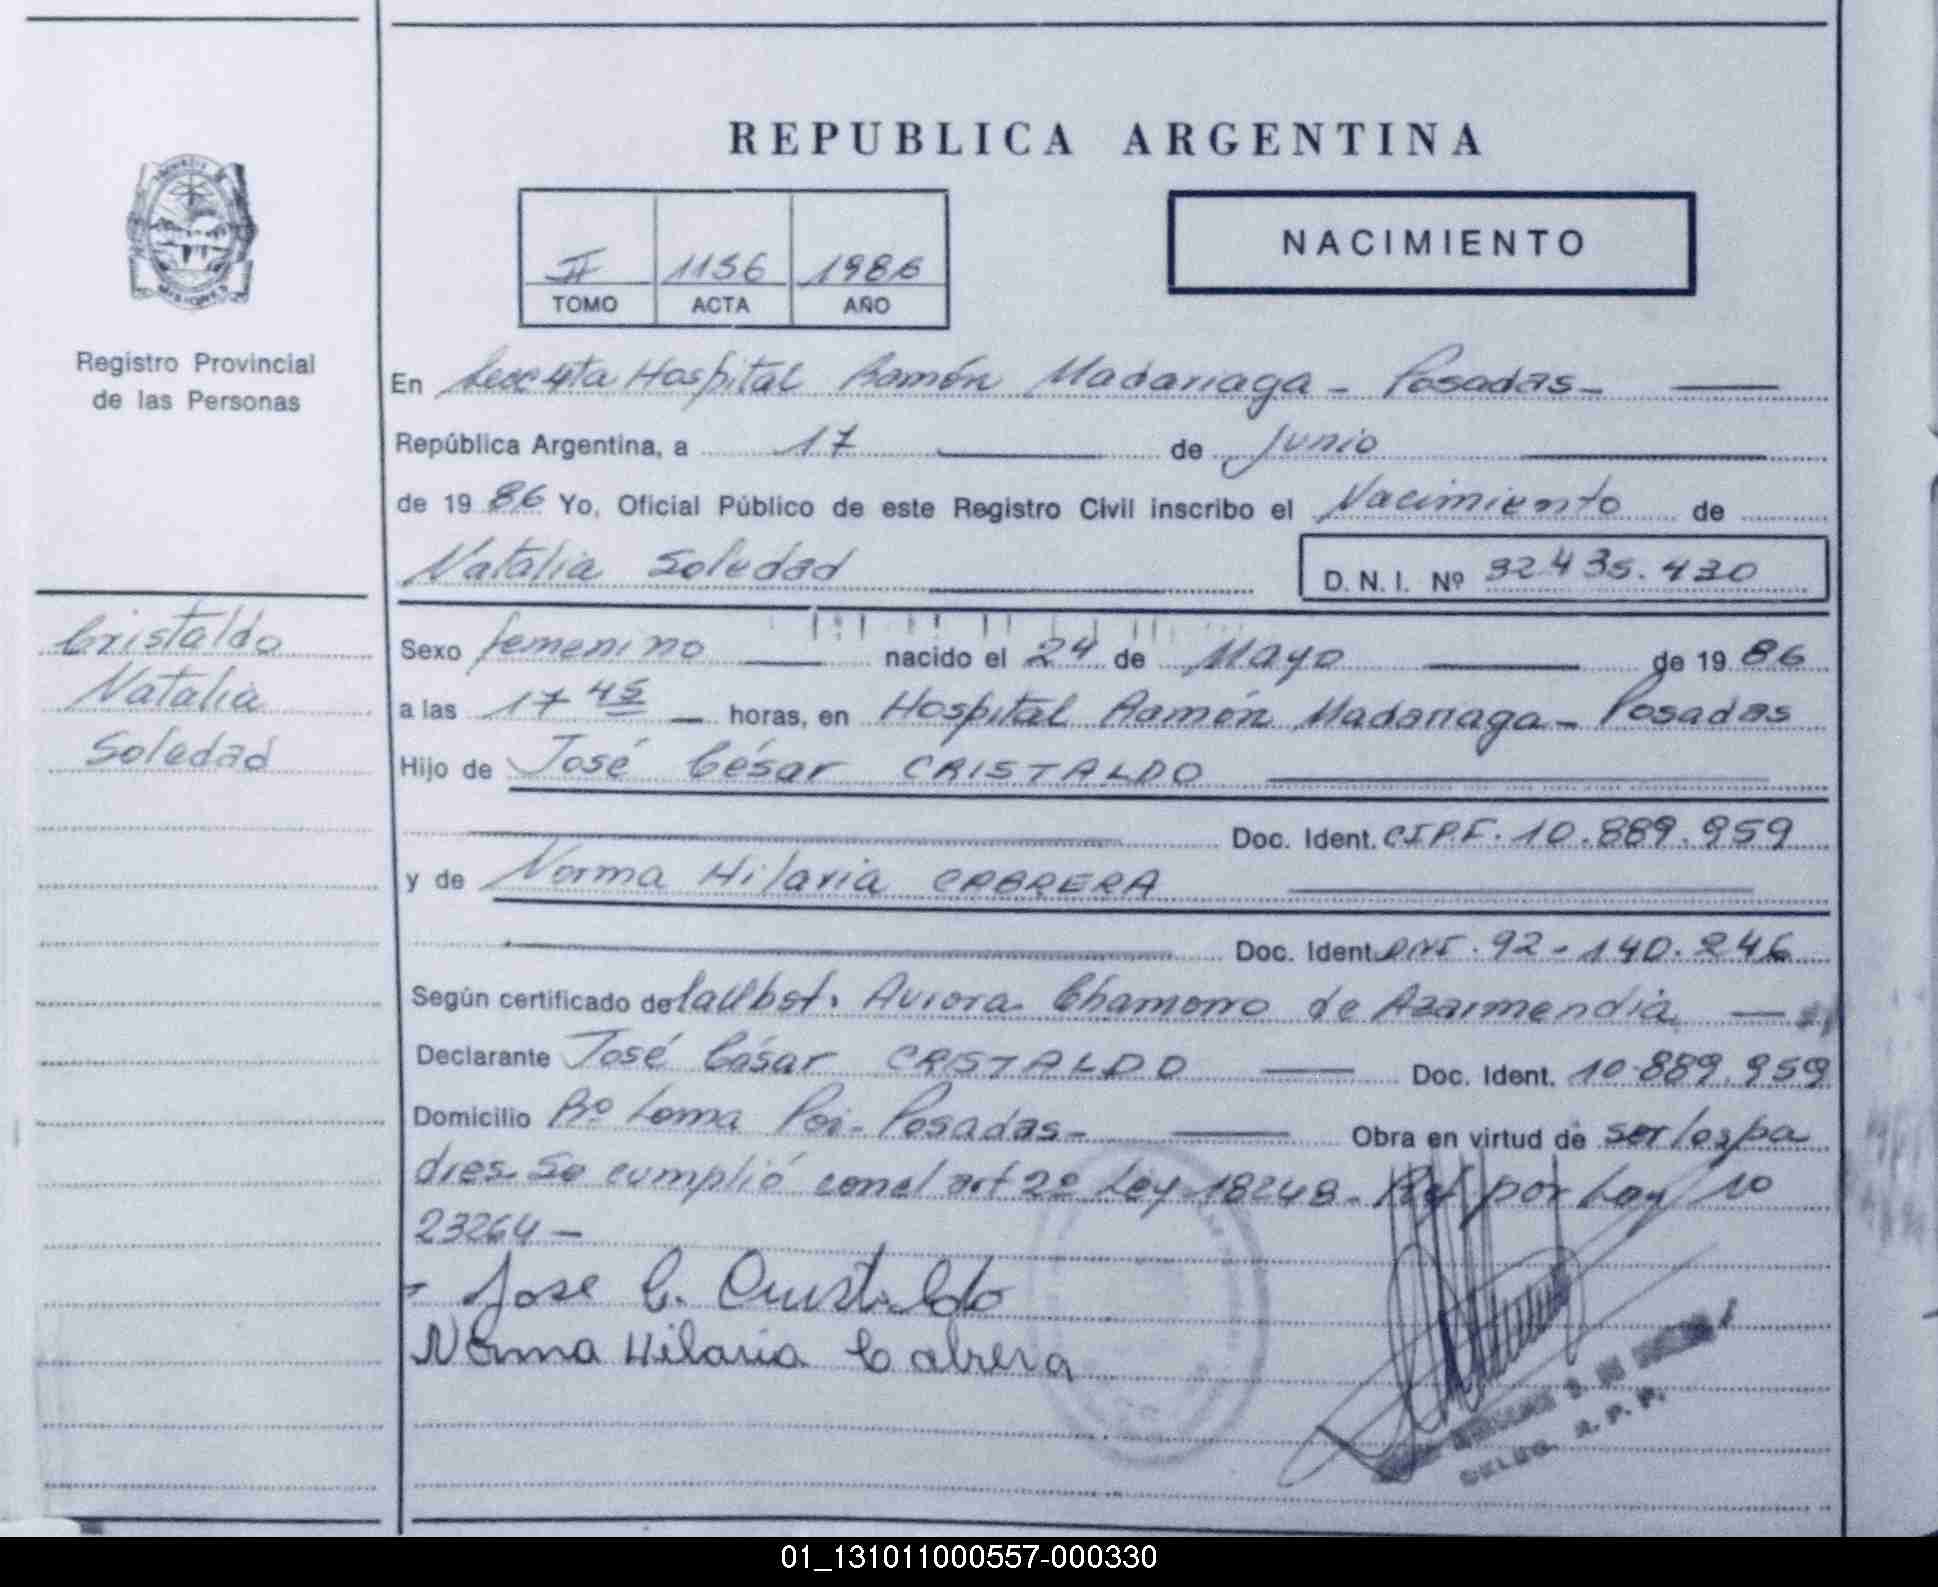 REPUBLICA ARGENTINA
II 1156 1986
TOMO ACTA AÑO
NACIMIENTO
Registro Provincial
de las Personas
En Secc 4ta Hospital Ramón Madariaga - Posadas -
República Argentina, a 17 de Junio
de 19 86 Yo, Oficial Público de este Registro Civil inscribo el Nacimiento de
Natalia Soledad D. N. I. Nº 32.435.430
Cristaldo
Natalia
Soledad
Sexo femenino nacido el 24 de Mayo de 19 86
a las 17 45 horas, en Hospital Ramón Madariaga - Posadas
Hijo de José César CRISTALDO
Doc. Ident. C.I.P.F. 10.889.959
y de Norma Hilaria CABRERA
Doc. Ident. DNI. 92-140.246
Según certificado de la Obst. Aurora Chamorro de Azarmendia
Declarante José César CRISTALDO Doc. Ident. 10.889.959
Domicilio Bº Loma Poi - Posadas - Obra en virtud de ser los pa
dres. Se cumplió con el art 2º Ley 18248 - Ref. por Ley No
23264 -
Jose C. Cristaldo
Norma Hilaria Cabrera
R. P. P.
01_131011000557-000330